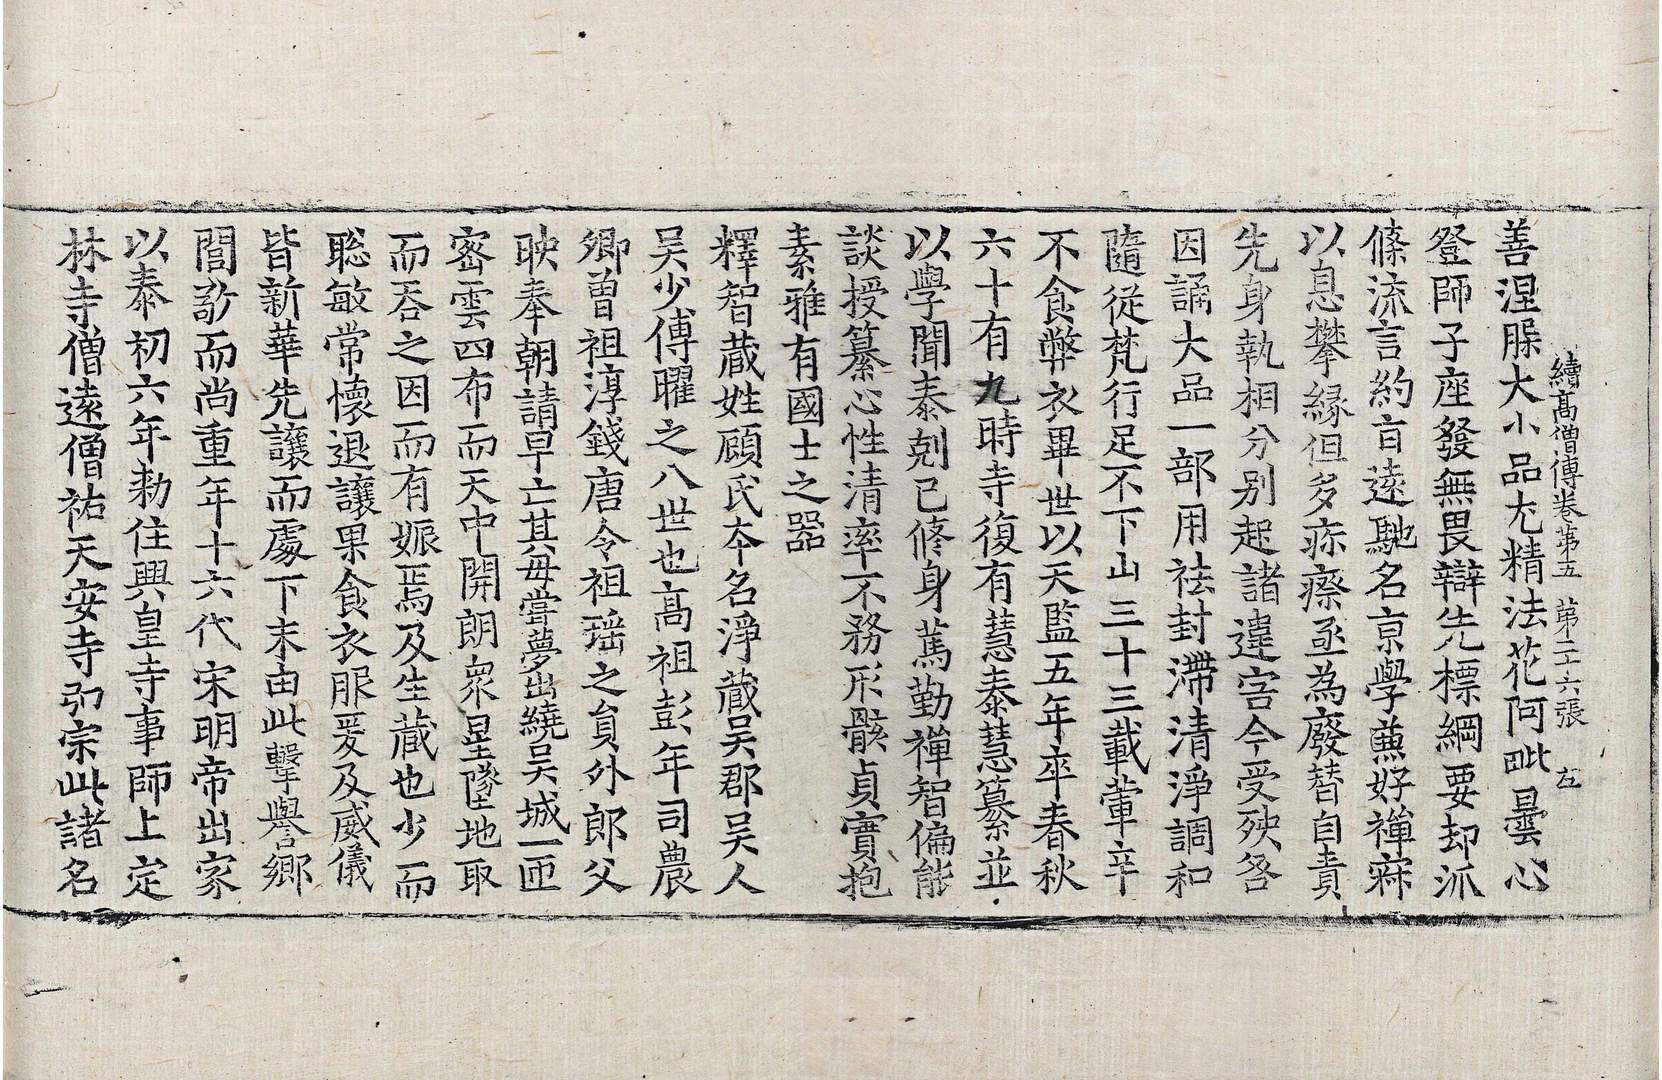 續高僧傳卷第五 第二十六張 左
善涅槃大小品尤精法花阿毗曇心
登師子座發無畏辯先標綱要却派
條流言約旨遠馳名京學兼好禪寂
以息攀緣但多疹瘵亟為廢替自責
先身執相分別起諸違害今受殃咎
因誦大品一部用祛封滯清淨調和
隨從梵行足不下山三十三載葷辛
不食弊衣畢世以天監五年卒春秋
六十有九時寺復有慧泰慧纂並
以學聞泰剋己修身篤勤禪智偏能
談授纂心性清率不務形骸貞實抱
素雅有國士之器
釋智藏姓顧氏本名淨藏吳郡吳人
吳少傅曜之八世也高祖彭年司農
卿曾祖淳錢唐令祖瑶之員外郎父
映奉朝請早亡其母嘗夢出繞吳城一匝
密雲四布而天中開朗衆星墜地取
而吞之因而有娠焉及生藏也少而
聡敏常懷退讓果食衣服爰及威儀
皆新華先讓而處下末由此擊譽鄉
閭敬而尚重年十六代宋明帝出家
以泰初六年勑住興皇寺事師上定
林寺僧遠僧祐天安寺弘宗此諸名